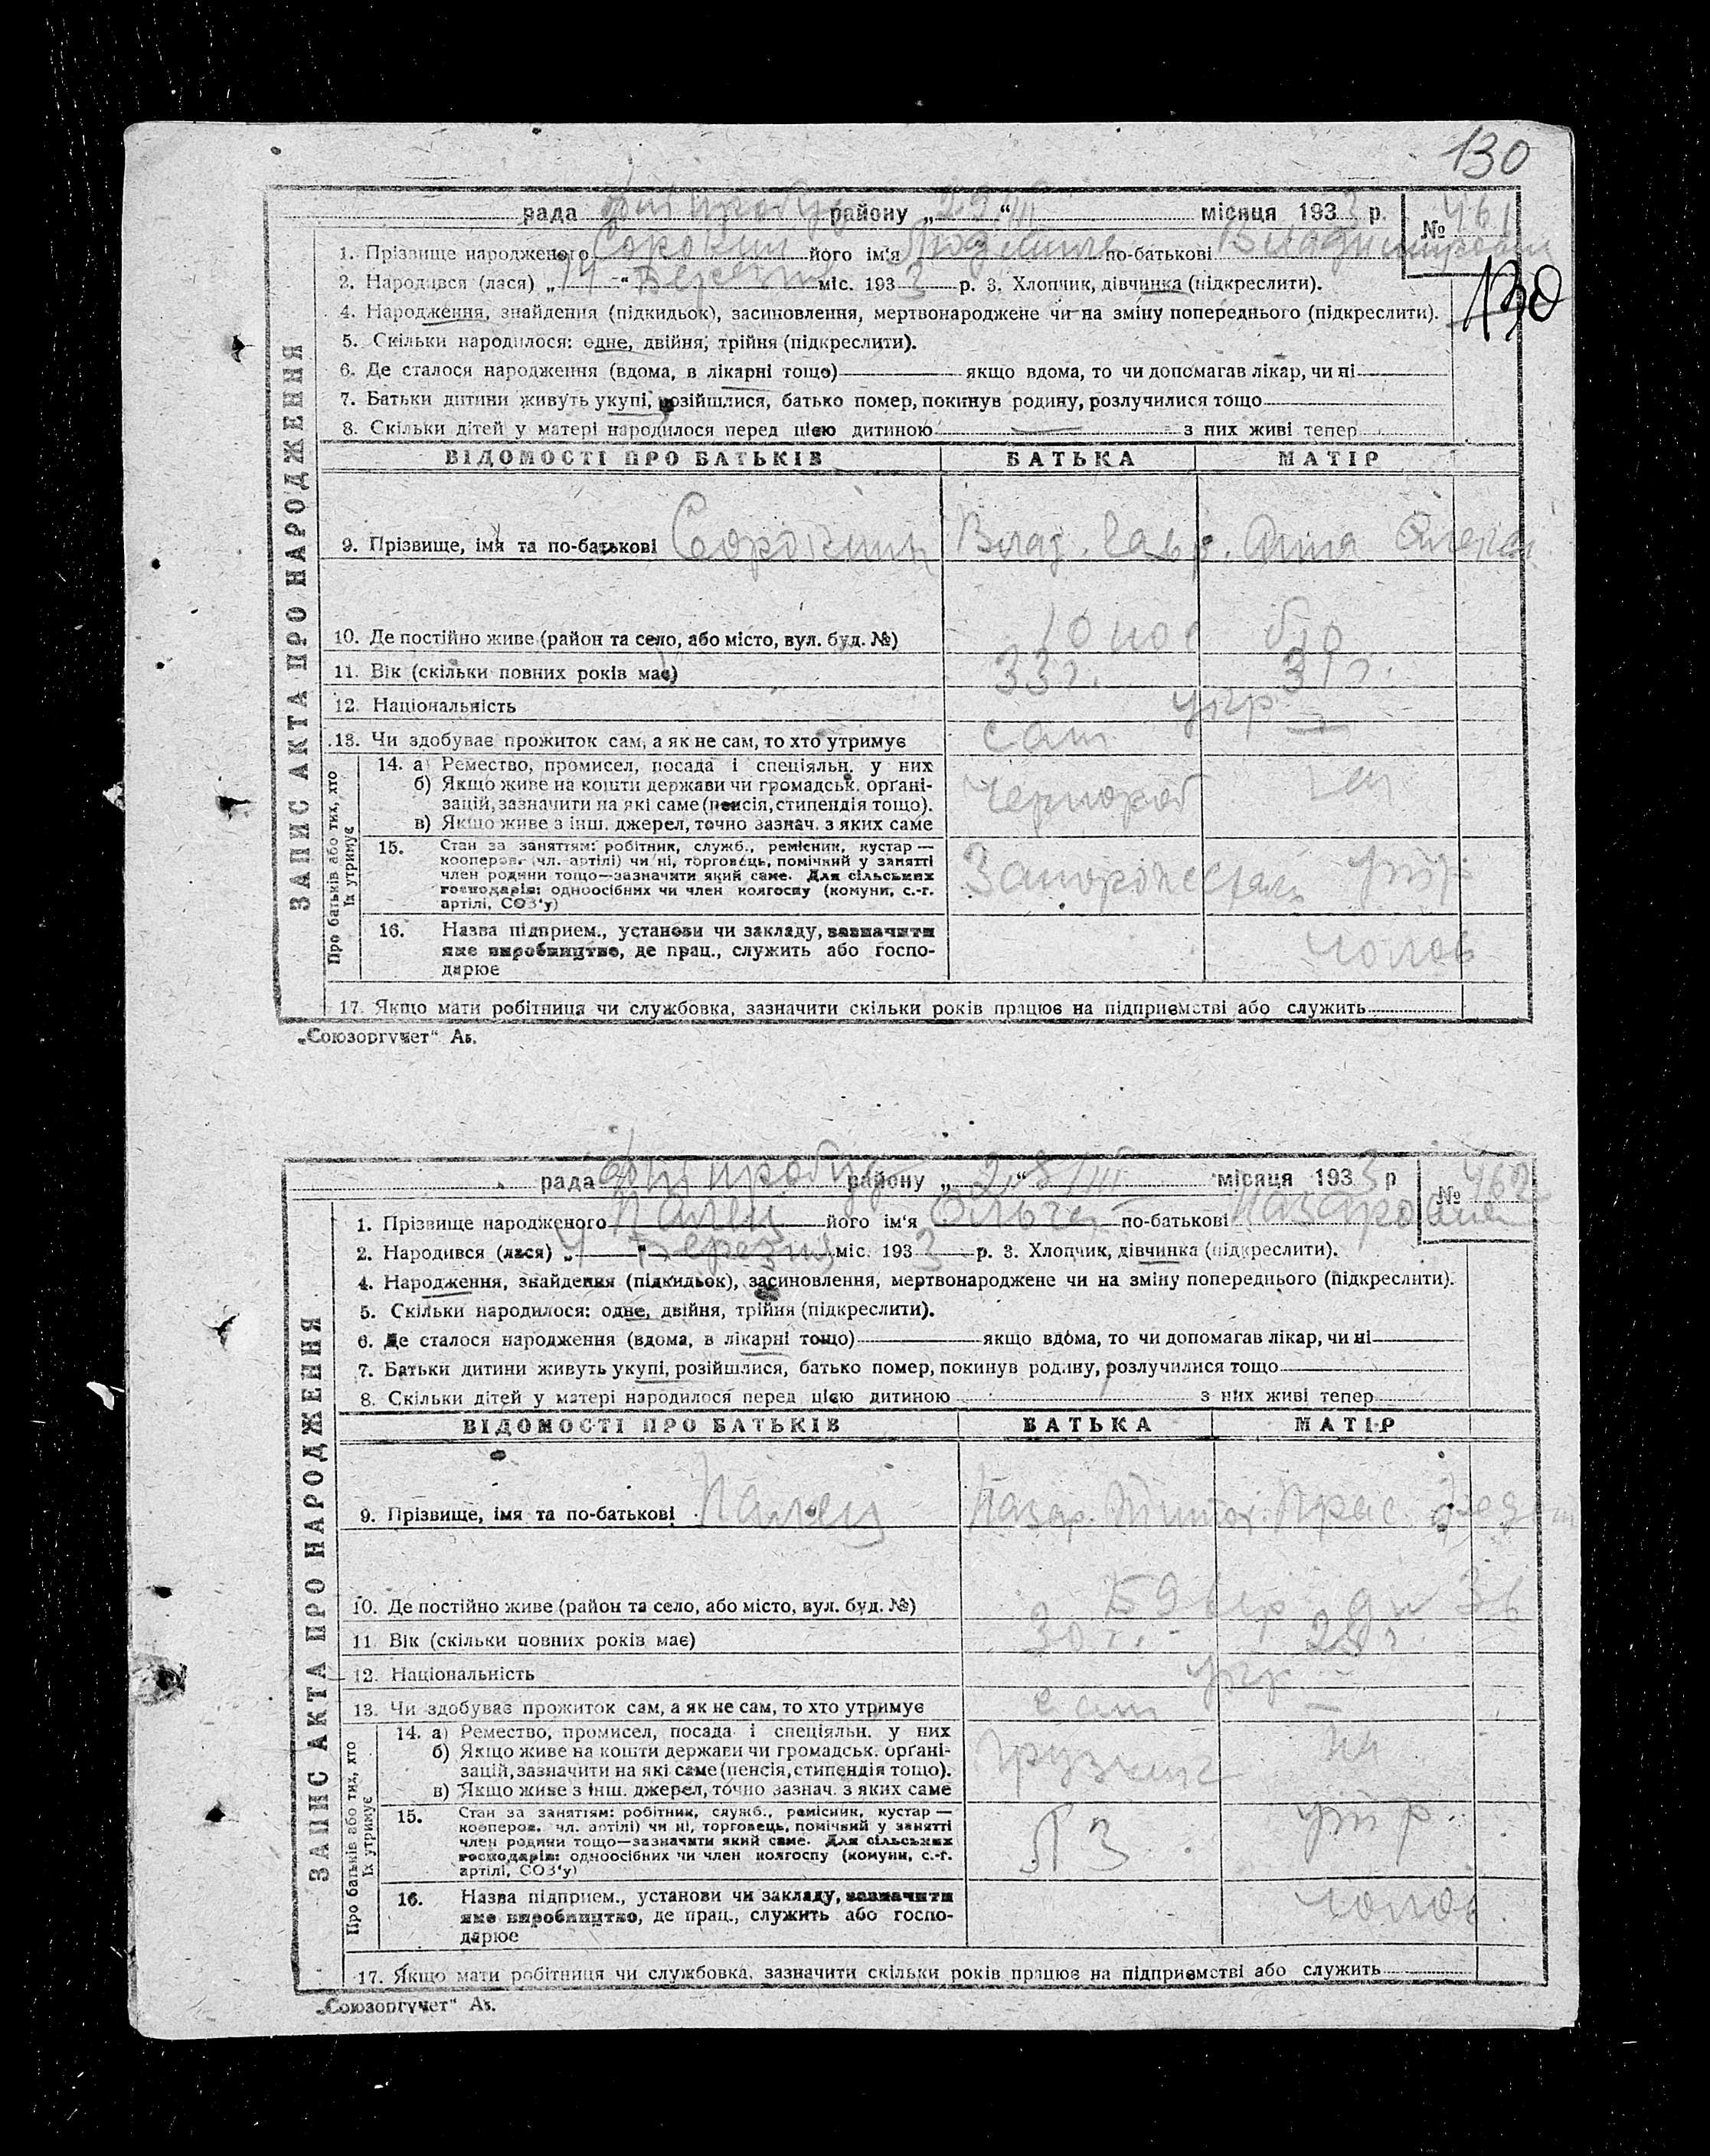 130
рада районy „29/III“ місяця 1933 р. № 461
1. Прізвище народженого Сорокин його ім'я Людмила по-батькові Владимировна
2. Народився (лася) „ “ Березня міс. 1933 р. 3. Хлопчик, дівчинка (підкреслити).
130
4. Народження, знайдення (підкидьок), засиновлення, мертвонароджене чи на зміну попереднього (підкреслити).
5. Скільки народилося: одне, двійня, трійня (підкреслити).
6. Де сталося народження (вдома, в лікарні тощо) якщо вдома, то чи допомагав лікар, чи ні
7. Батьки дитини живуть укупі, розійшлися, батько помер, покинув родину, розлучилися тощо
8. Скільки дітей у матері народилося перед цією дитиною — з них живі тепер
ЗАПИС АКТА ПРО НАРОДЖЕННЯ
ВІДОМОСТІ ПРО БАТЬКІВ БАТЬКА МАТІР
9. Прізвище, імя та по-батькові Сорокини Влад. Савр. Анна
10. Де постійно живе (район та село, або місто, вул. буд. №) 10 пос
11. Вік (скільки повних років має) 33 г. 31 г.
12. Національність укр
13. Чи здобуває прожиток сам, а як не сам, то хто утримує сам —
Про батьків або тих, хто їх утримує
14. а) Ремество, промисел, посада і спеціяльн. у них
б) Якщо живе на кошти держави чи громадськ. орґані-
зацій, зазначити на які саме (пенсія, стипендія тощо).
в) Якщо живе з інш. джерел, точно зазнач. з яких саме
Чернороб
15. Стан за заняттям: робітник, служб., ремісник, кустар —
кооперов. (чл. артілі) чи ні, торговець, помічний у занятті
член родини тощо—зазначити який саме. Для сільських
господарів: одноосібних чи член колгоспу (комуни, с.-г.
артілі, СОЗ'у)
Запорожсталь утр.
16. Назва підприєм., установи чи закладу, зазначити
яке виробництво, де прац., служить або госпо-
дарює
чолов
17. Якщо мати робітниця чи службовка, зазначити скільки років працює на підприємстві або служить
„Союзоргучет“ Ав.
рада району „28/III“ місяця 1933 р № 462
1. Прізвище народженого Палец його ім'я Ольга по-батькові Назаровна
2. Народився (лася) „4“ Березня міс. 1933 р. 3. Хлопчик, дівчинка (підкреслити).
4. Народження, знайдення (підкидьок), засиновлення, мертвонароджене чи на зміну попереднього (підкреслити).
5. Скільки народилося: одне, двійня, трійня (підкреслити).
6. Де сталося народження (вдома, в лікарні тощо) якщо вдома, то чи допомагав лікар, чи ні
7. Батьки дитини живуть укупі, розійшлися, батько помер, покинув родину, розлучилися тощо
8. Скільки дітей у матері народилося перед цією дитиною з них живі тепер
ЗАПИС АКТА ПРО НАРОДЖЕННЯ
ВІДОМОСТІ ПРО БАТЬКІВ БАТЬКА МАТІР
9. Прізвище, імя та по-батькові Палец Назар. Тимоф. Прас.
10. Де постійно живе (район та село, або місто, вул. буд. №)
11. Вік (скільки повних років має) 30 г. 28 г.
12. Національність укр
13. Чи здобуває прожиток сам, а як не сам, то хто утримує сам —
Про батьків або тих, хто їх утримує
14. а) Ремество, промисел, посада і спеціяльн. у них
б) Якщо живе на кошти держави чи громадськ. орґані-
зацій, зазначити на які саме (пенсія, стипендія тощо).
в) Якщо живе з інш. джерел, точно зазнач. з яких саме
грузчик
15. Стан за заняттям: робітник, служб., ремісник, кустар —
кооперов. чл. артілі) чи ні, торговець, помічний у занятті
член родини тощо—зазначити який саме. Для сільських
господарів: одноосібних чи член колгоспу (комуни, с.-г.
артілі, СОЗ'у)
утр.
16. Назва підприєм., установи чи закладу, зазначити
яке виробництво, де прац., служить або госпо-
дарює
чолов
17. Якщо мати робітниця чи службовка, зазначити скільки років працює на підприємстві або служить
„Союзоргучет“ Ав.